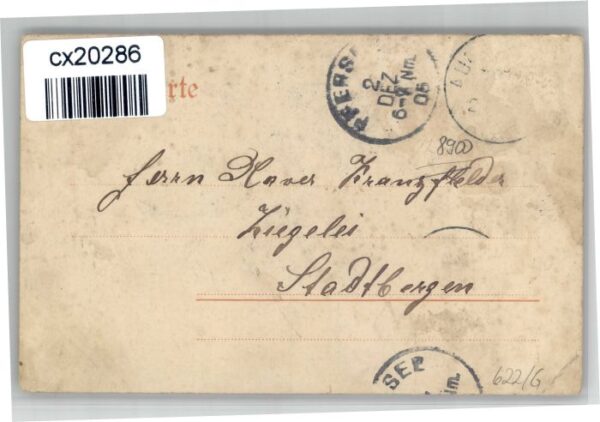 cx20286
rte
PFERS
2
DEZ
6-7 Nm.
05
AU
8900
Herrn Xaver Franz
Ziegelei
Stadtbergen
SEE
Nm.
622/G